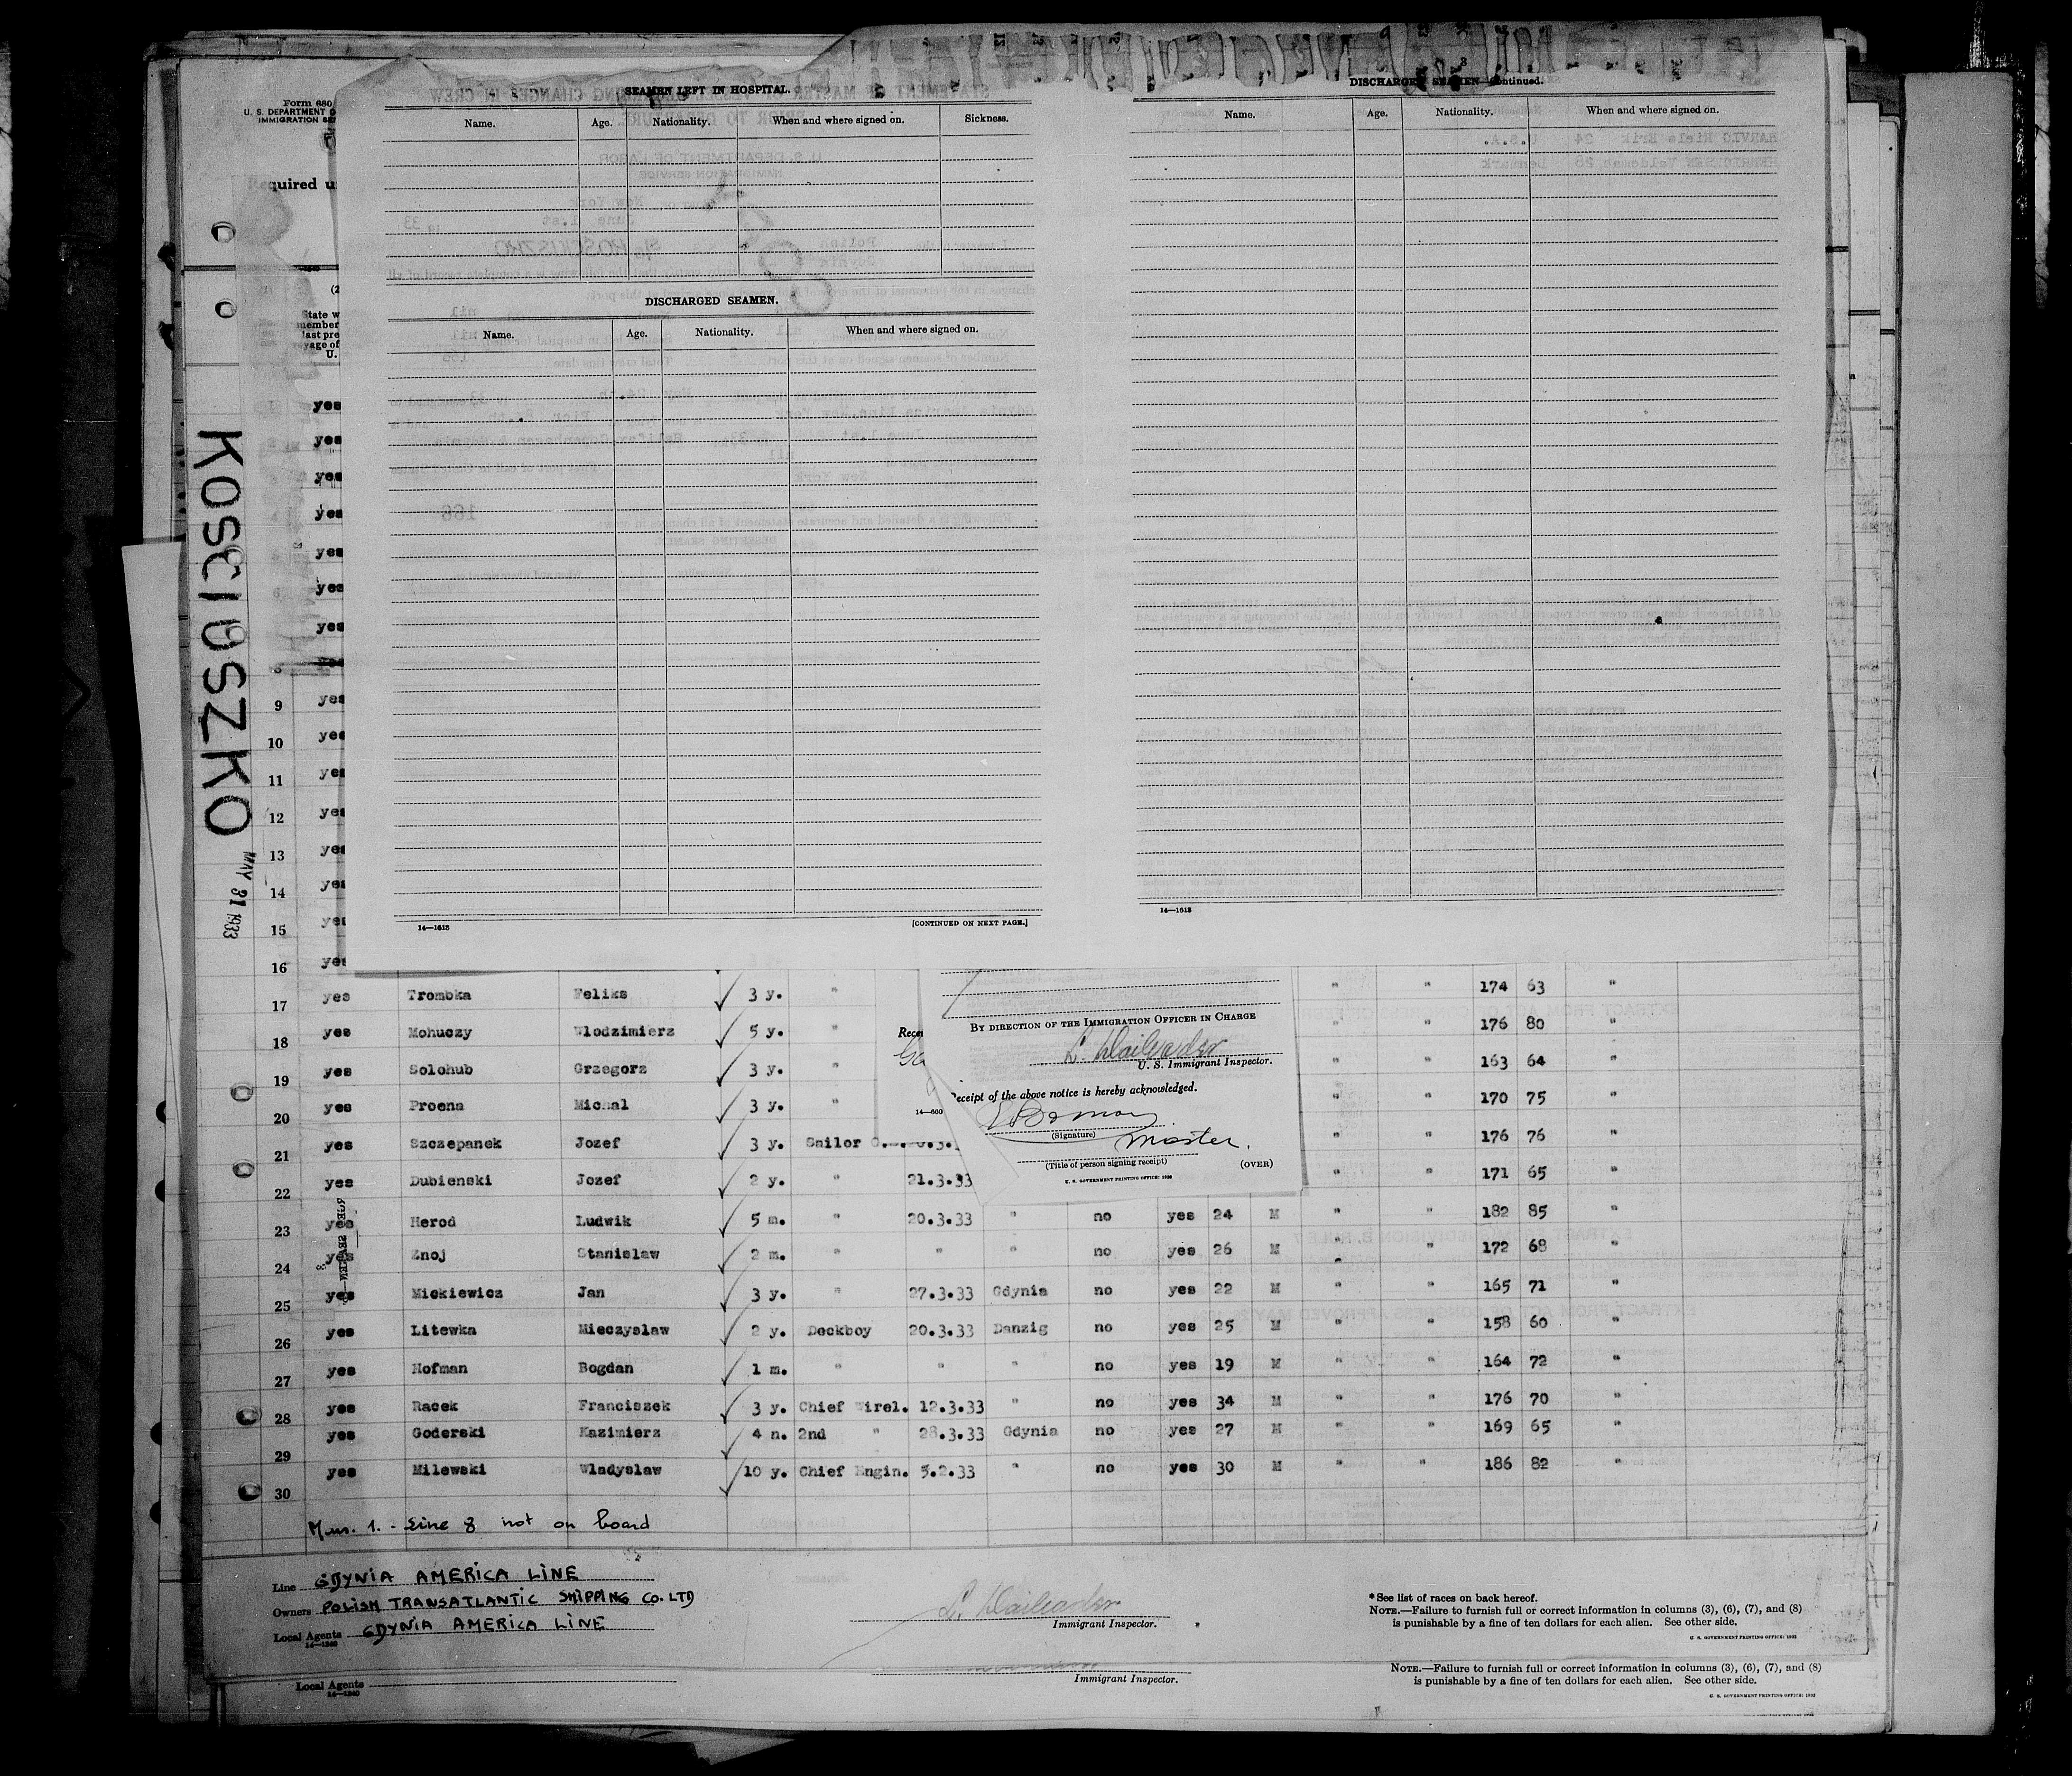 Form 680
U. S. DEPARTMENT O
IMMIGRATION SE
Required u
State w
member
last pre
yage of
U.
KOSCIUSZKO
MAY 31 1933
SEAMEN LEFT IN HOSPITAL.
Name. Age. Nationality. When and where signed on. Sickness.
DISCHARGED SEAMEN.
Name. Age. Nationality. When and where signed on.
14—1613 [CONTINUED ON NEXT PAGE.]
DISCHARGED SEAMEN—Continued.
Name. Age. Nationality. When and where signed on.
14—1613
yes
yes
yes
yes
yes
yes
yes
8 yes
9 yes
10 yes
11 yes
12 yes
13 yes
14 yes
15 yes
16 yes
17 yes Trombka Feliks ✓ 3 y. " " " 174 63 "
18 yes Mohuczy Wlodzimierz ✓ 5 y. " " 176 80 "
19 yes Solohub Grzegorz ✓ 3 y. " " " 163 64 "
20 yes Proena Michal ✓ 3 y. " " " 170 75 "
21 yes Szczepanek Jozef ✓ 3 y. Sailor " " 176 76 "
22 yes Dubienski Jozef ✓ 2 y. " 21.3.33 " " 171 65 "
23 yes Herod Ludwik ✓ 5 m. " 20.3.33 " no yes 24 M " " 182 85 "
24 yes Znoj Stanislaw ✓ 2 m. " " " no yes 26 M " " 172 68 "
25 yes Mickiewicz Jan ✓ 3 y. " 27.3.33 Gdynia no yes 22 M " " 165 71 "
26 yes Litewka Mieczyslaw ✓ 2 y. Deckboy 20.3.33 Danzig no yes 25 M " " 158 60 "
27 yes Hofman Bogdan ✓ 1 m. " " " no yes 19 M " " 164 72 "
28 yes Racek Franciszek ✓ 3 y. Chief Wirel. 12.3.33 " no yes 34 M " " 176 70 "
29 yes Goderski Kazimierz ✓ 4 n. 2nd " 28.3.33 Gdynia no yes 27 M " " 169 65 "
30 yes Milewski Wladyslaw ✓ 10 y. Chief Engin. 5.2.33 " no yes 30 M " " 186 82 "
Recei
14—660
BY DIRECTION OF THE IMMIGRATION OFFICER IN CHARGE
U. S. Immigrant Inspector.
Receipt of the above notice is hereby acknowledged.
(Signature) Master.
(Title of person signing receipt) (OVER)
U. S. GOVERNMENT PRINTING OFFICE: 1930
1. - Line 8 not on board
Line GDYNIA AMERICA LINE
Owners POLISH TRANSATLANTIC SHIPPING CO. LTD
Local Agents GDYNIA AMERICA LINE
14—1240
Immigrant Inspector.
*See list of races on back hereof.
NOTE.—Failure to furnish full or correct information in columns (3), (6), (7), and (8)
is punishable by a fine of ten dollars for each alien. See other side.
U. S. GOVERNMENT PRINTING OFFICE: 1932
Local Agents
14—1240
Immigrant Inspector.
NOTE.—Failure to furnish full or correct information in columns (3), (6), (7), and (8)
is punishable by a fine of ten dollars for each alien. See other side.
U. S. GOVERNMENT PRINTING OFFICE: 1932